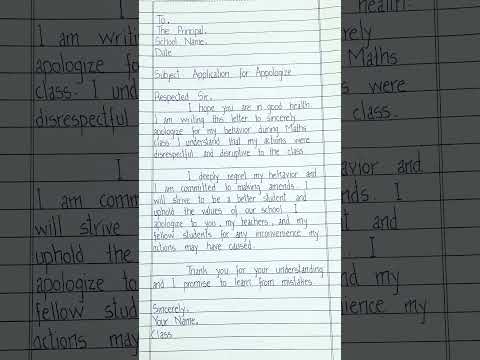 To,
The Principal,
School Name,
Date
Subject Application for Appologize
Respected Sir,
I hope you are in good health.
I am writing this letter to sincerely
apologize for my behavior during Maths
class I understand that my actions were
disrespectful and disruptive to the class
I deeply regret my behavior and
I am committed to making amends. I
will strive to be a better student and
uphold the values of our school. I
apologize to you, my teachers, and my
fellow students for any inconvenience my
actions may have caused.
Thank you for your understanding
and I promise to learn from mistakes
Sincerely,
Your Name,
Class